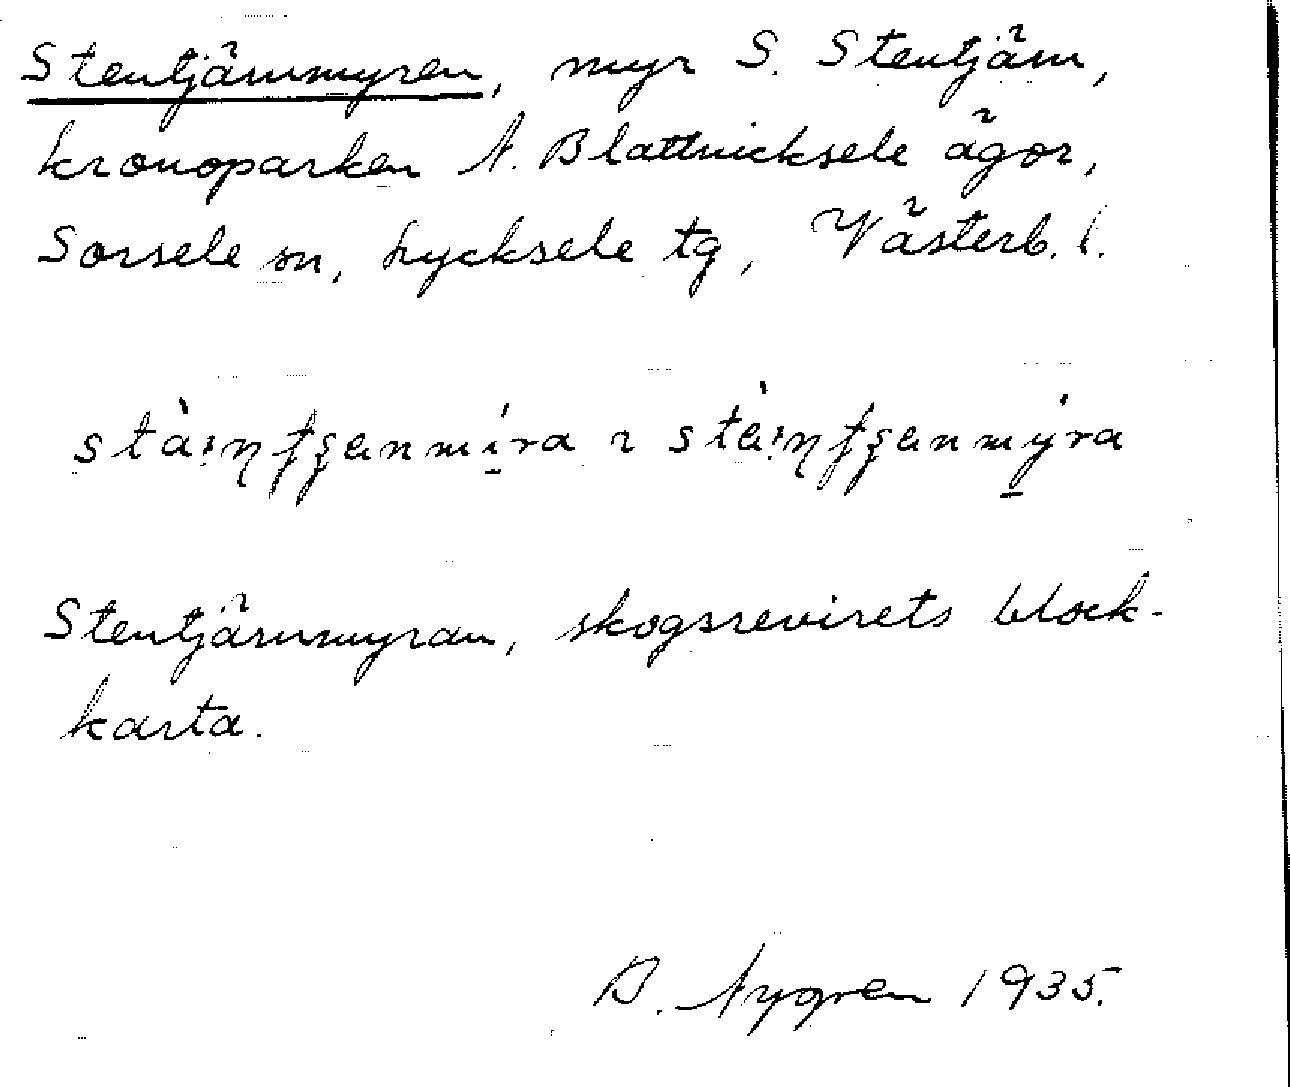 Stentjärnmyren, myr S. Stentjärn,
kronoparken N. Blattnicksele ägor,
Sorsele sn, Lycksele tg, Västerb. l.
Stentjärnmyran, skogsrevirets block-
karta.
B. Nygren 1935.